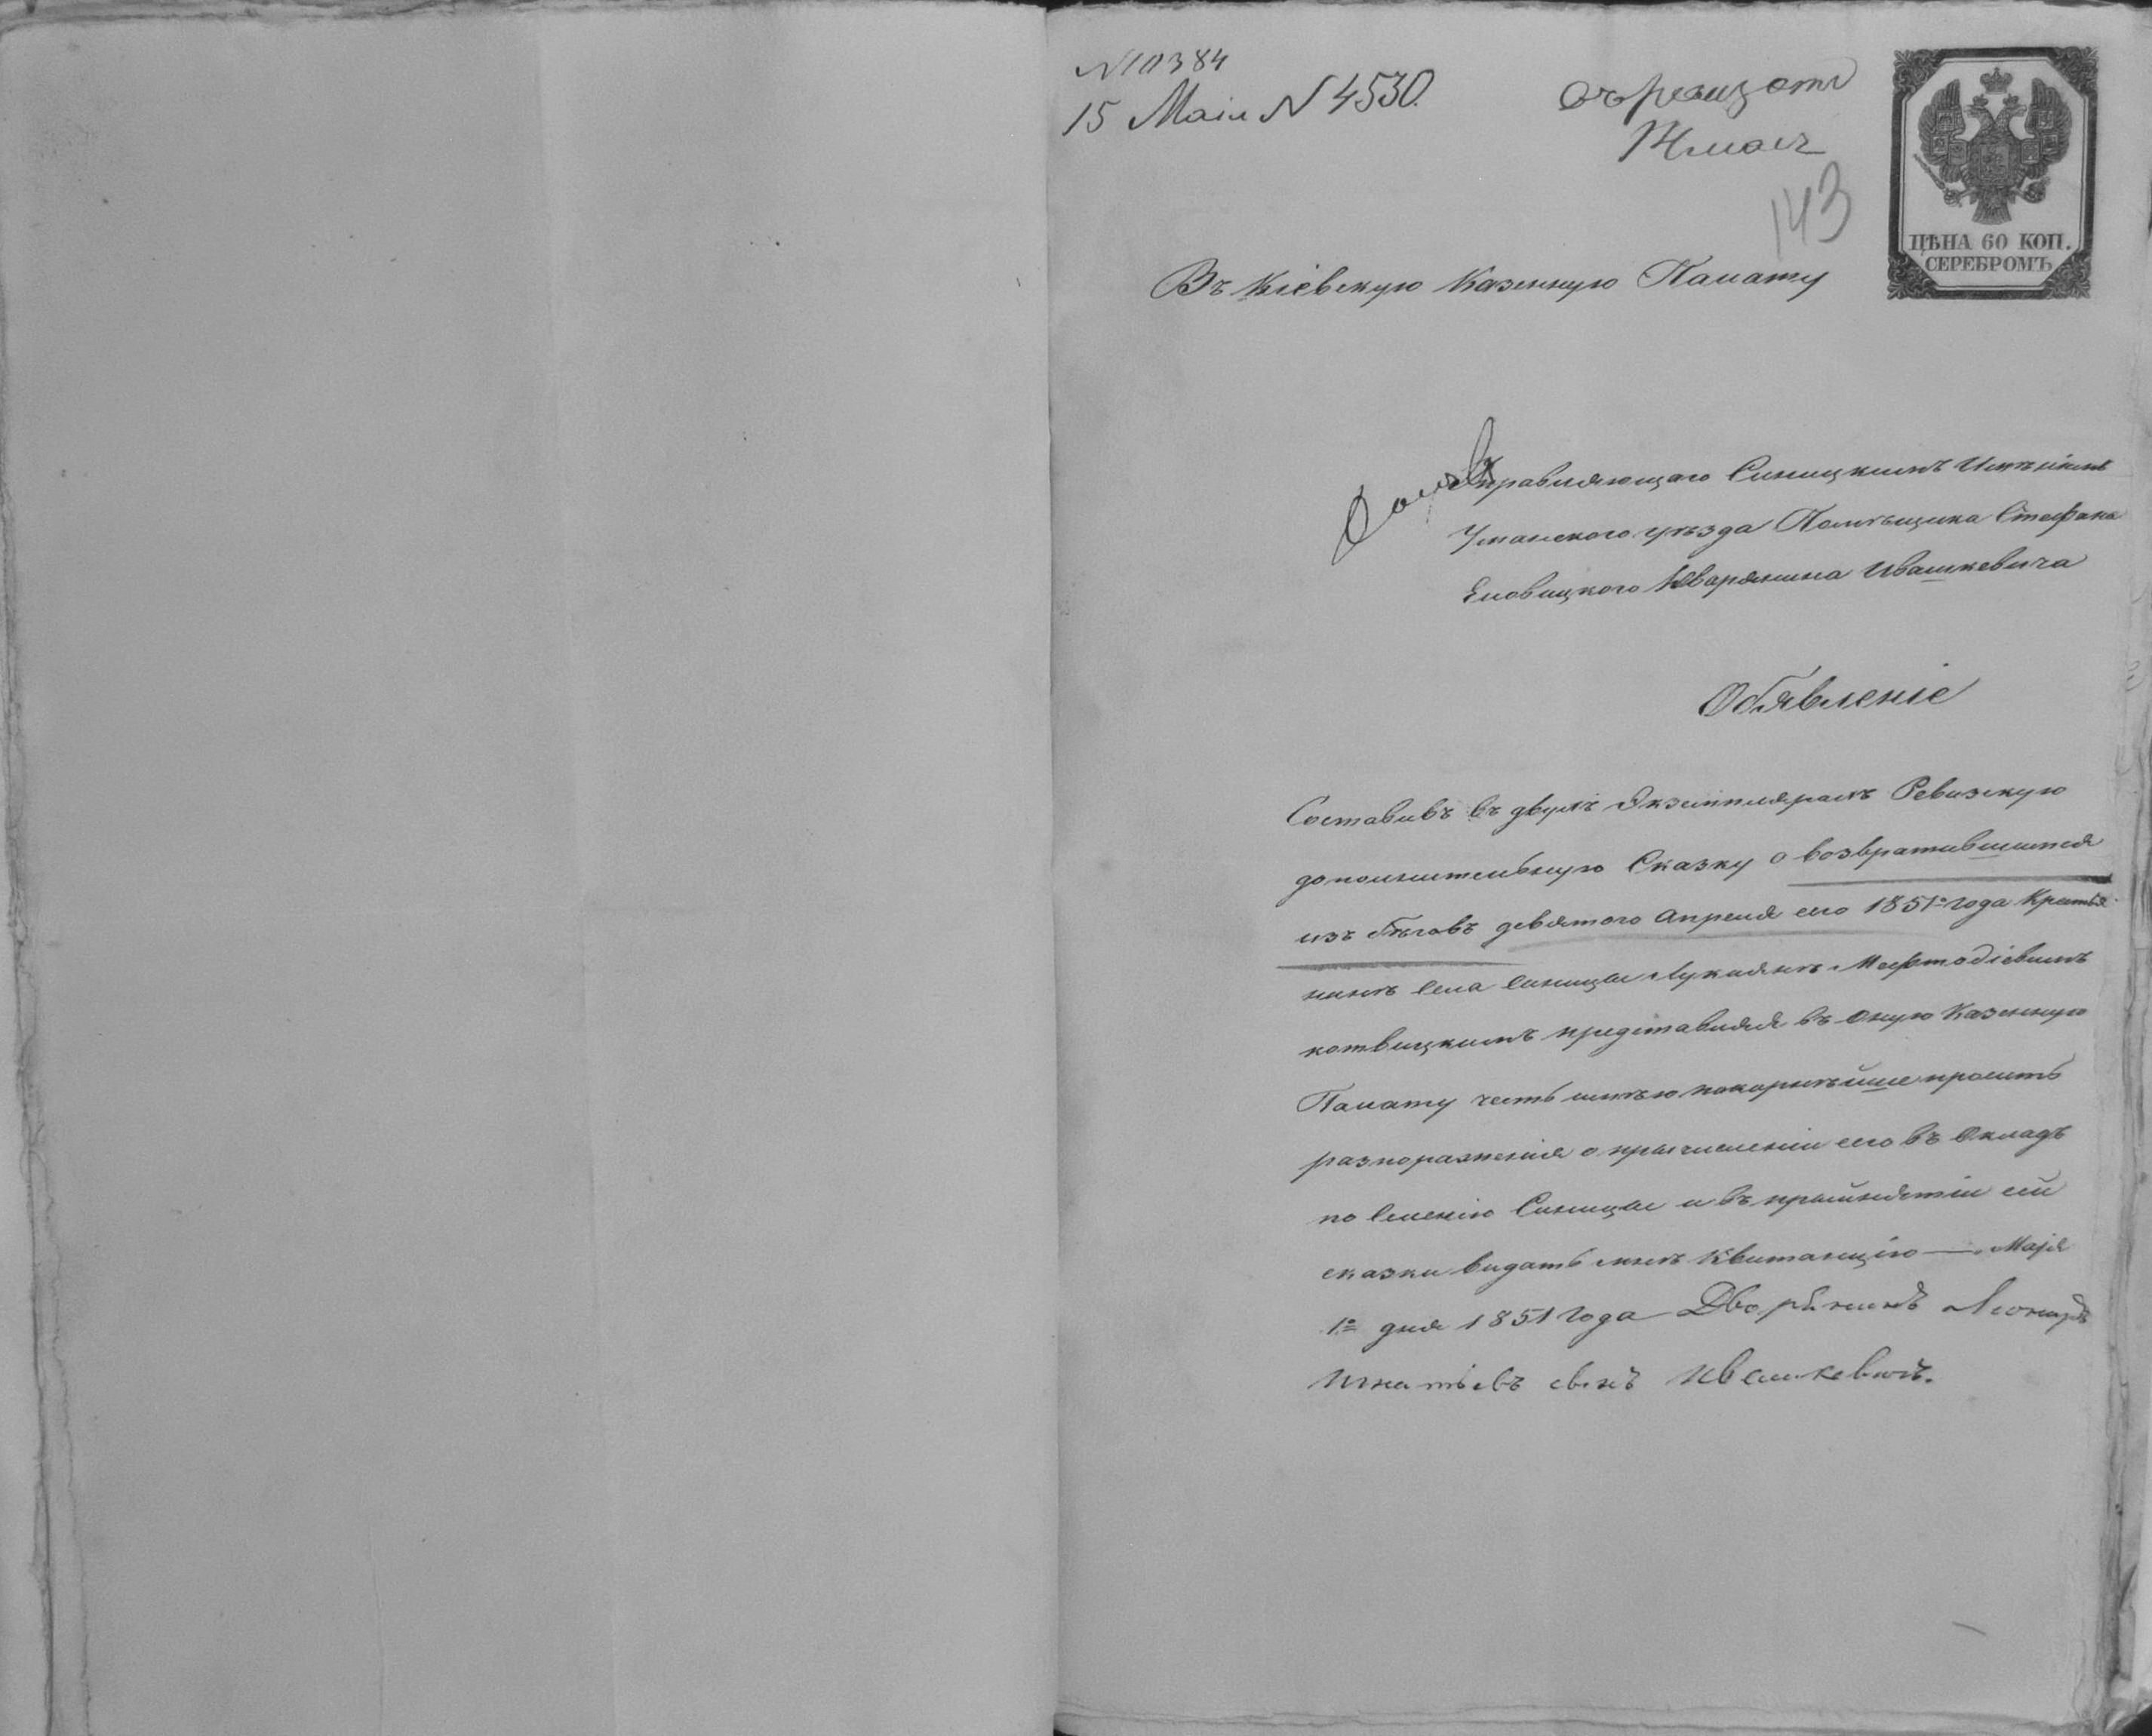 N 10384
15 Маія N 4530.
143
ЦѢНА 60 КОП.
СЕРЕБРОМЪ
Въ Кіевскую Казенную Палату
Управляющаго Синицкимъ Имѣніемъ
Уманского уѣзда Помѣщика Стефана
Еловицкого Дворянина Ивашкевича
Объявленіе
Составивъ въ двухъ Экземплярахъ Ревизскую
дополнительную Сказку о возвратившимся
изъ бѣговъ девятого Апреля сего 1851го года Крестья
нинѣ Села Синицы Лукіянѣ Мефтодіевимъ
котвицкимъ представляя въ Оную Казенную
Палату честь имѣю покорнѣйше просить
разпоряженія о прычисленіи его въ Окладъ
по Селенію Синицы и въ прыйнятіи сей
сказки видать мнѣ Квитанцію — Маія
1го дня 1851 года Дворянинъ Леонардъ
Игнатіевъ сынъ Ивашкевичъ.